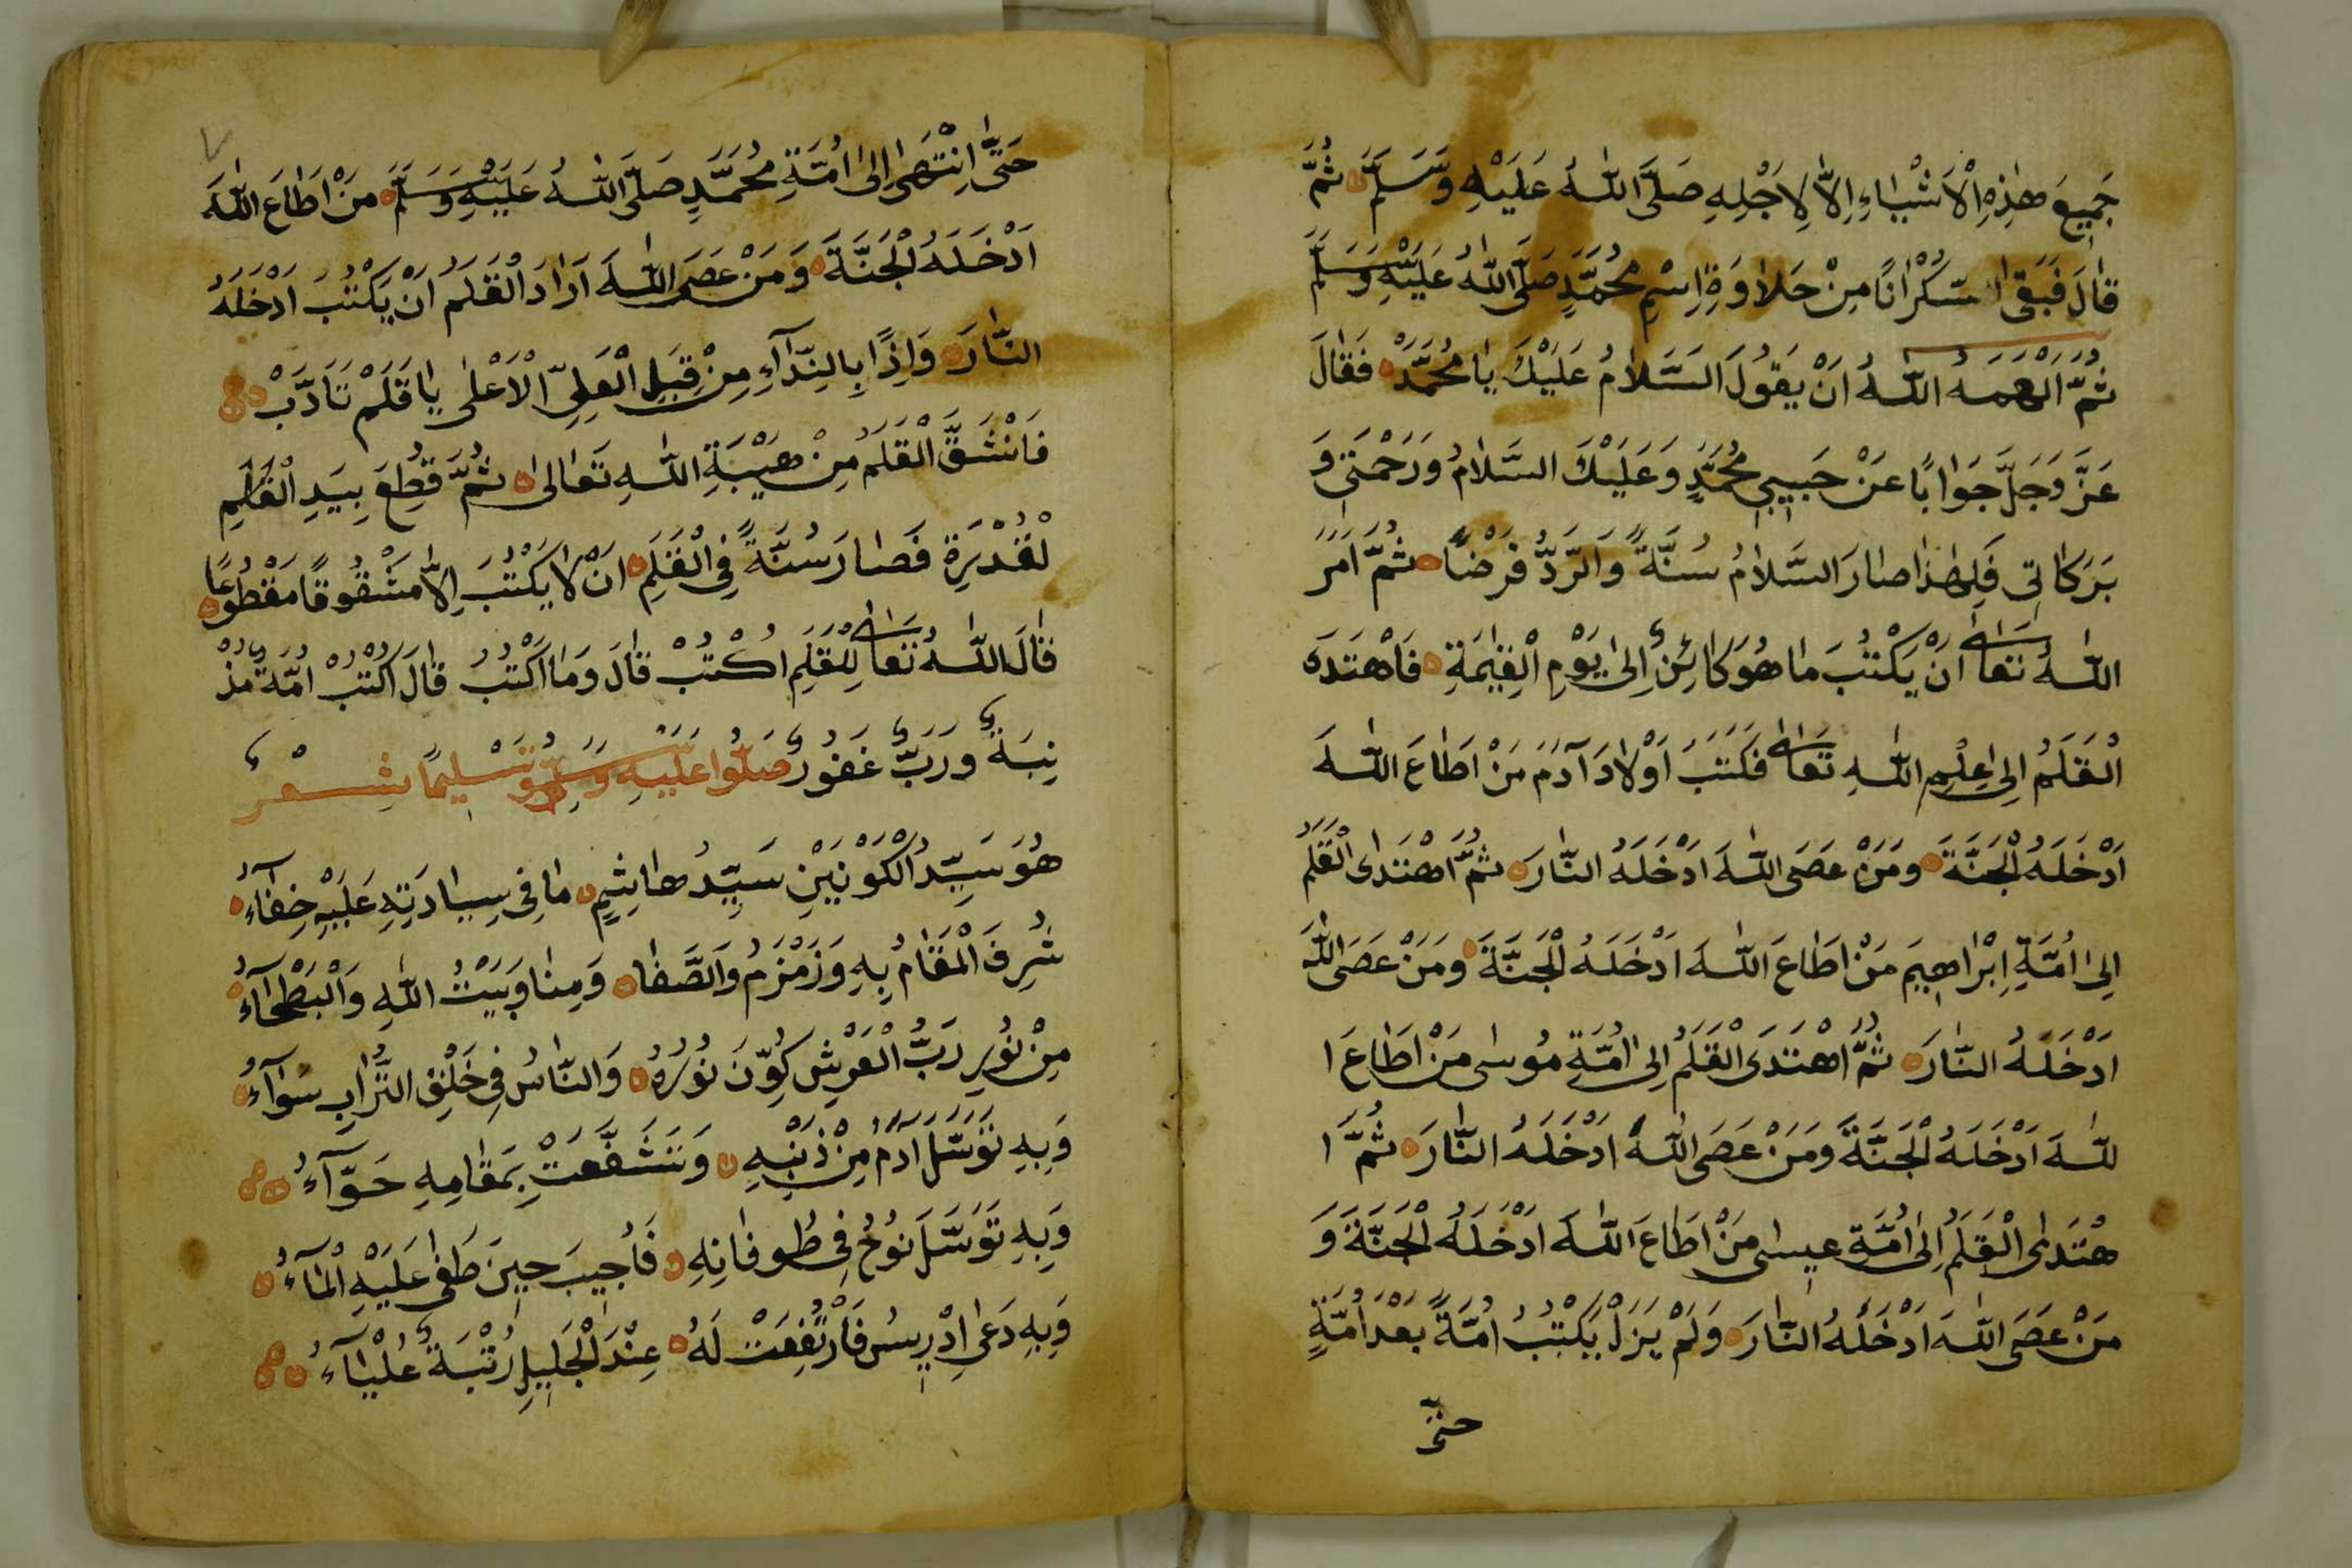 جَمِيعَ هٰذِهِ الْاَشْيَاءِ اِلَّا لِاَجْلِهِ صَلَّى اللّٰهُ عَلَيْهِ وَسَلَّمَ ثُمَّ
قَالَ فَبَقٰى سَكْرَانًا مِنْ حَلَاوَةِ اِسْمِ مُحَمَّدٍ صَلَّى اللّٰهُ عَلَيْهِ وَسَلَّمَ
ثُمَّ اَلْهَمَهُ اللّٰهُ اَنْ يَقُولَ السَّلَامُ عَلَيْكَ يَا مُحَمَّدْ فَقَالَ
عَزَّ وَجَلَّ جَوَابًا عَنْ حَبِيبِي مُحَمَّدٍ وَعَلَيْكَ السَّلَامُ وَرَحْمَتِي وَ
بَرَكَاتِي فَلِهٰذَا صَارَ السَّلَامُ سُنَّةً وَالرَّدُّ فَرْضًا ثُمَّ اَمَرَ
اللّٰهُ تَعَالٰى اَنْ يَكْتُبَ مَا هُوَ كَائِنٌ اِلٰى يَوْمِ الْقِيٰمَةِ فَاهْتَدَى
الْقَلَمُ اِلٰى عِلْمِ اللّٰهِ تَعَالٰى فَكَتَبَ اَوْلَادَ آدَمَ مَنْ اَطَاعَ اللّٰهَ
اَدْخَلَهُ الْجَنَّةَ وَمَنْ عَصَى اللّٰهَ اَدْخَلَهُ النَّارَ ثُمَّ اهْتَدَى الْقَلَمُ
اِلٰى اُمَّةِ اِبْرَاهِيمَ مَنْ اَطَاعَ اللّٰهَ اَدْخَلَهُ الْجَنَّةَ وَمَنْ عَصَى اللّٰهَ
اَدْخَلَهُ النَّارَ ثُمَّ اهْتَدَى الْقَلَمُ اِلٰى اُمَّةِ مُوسٰى مَنْ اَطَاعَ ا
للّٰهَ اَدْخَلَهُ الْجَنَّةَ وَمَنْ عَصَى اللّٰهَ اَدْخَلَهُ النَّارَ ثُمَّ ا
هْتَدَى الْقَلَمُ اِلٰى اُمَّةِ عِيسٰى مَنْ اَطَاعَ اللّٰهَ اَدْخَلَهُ الْجَنَّةَ وَ
مَنْ عَصَى اللّٰهَ اَدْخَلَهُ النَّارَ وَلَمْ يَزَلْ يَكْتُبُ اُمَّةً بَعْدَ اُمَّةٍ
حتّى
٧
حَتَّى انْتَهٰى اِلٰى اُمَّةِ مُحَمَّدٍ صَلَّى اللّٰهُ عَلَيْهِ وَسَلَّمَ مَنْ اَطَاعَ اللّٰهَ
اَدْخَلَهُ الْجَنَّةَ وَمَنْ عَصَى اللّٰهَ اَرَادَ الْقَلَمُ اَنْ يَكْتُبَ اَدْخَلَهُ
النَّارَ وَاِذًا بِالنِّدَآءِ مِنْ قِبَلِ الْعَلِيِّ الْاَعْلٰى يَا قَلَمْ تَاَدَّبْ
فَانْشَقَّ الْقَلَمُ مِنْ هَيْبَةِ اللّٰهِ تَعَالٰى ثُمَّ قُطِعَ بِيَدِ الْقَلَمِ
لْقُدْرَةِ فَصَارَ سُنَّةً فِي الْقَلَمِ اَنْ لَا يَكْتُبَ اِلَّا مَشْقُوقًا مَقْطُوعًا
قَالَ اللّٰهُ تَعَالٰى لِلْقَلَمِ اُكْتُبْ قَالَ وَمَا اَكْتُبُ قَالَ اُكْتُبْ اُمَّةٌ مُذْ
نِبَةٌ وَرَبٌّ غَفُورٌ صَلُّوا عَلَيْهِ وَسَلِّمُوا تَسْلِيمًا شِعْرٌ
هُوَ سَيِّدُ الْكَوْنَيْنِ سَيِّدُ هَاشِمٍ مَا فِي سِيَادَتِهِ عَلَيْهِ خِفَآءُ
شُرِفَ الْمَقَامُ بِهِ وَزَمْزَمُ وَالصَّفَا وَمِنَا وَبَيْتُ اللّٰهِ وَالْبَطْحَآءُ
مِنْ نُورِ رَبُّ الْعَرْشِ كُوِّنَ نُورُهُ وَالنَّاسُ فِي خَلْقِ التُّرَابِ سَوَآءُ
وَبِهِ تَوَسَّلَ اٰدَمُ مِنْ ذَنْبِهِ وَتَشَفَّعَتْ بِمَقَامِهِ حَوَّآءُ
وَبِهِ تَوَسَّلَ نُوحُ فِي طُوفَانِهِ فَاُجِيبَ حِينَ طَغٰى عَلَيْهِ الْمَآءُ
وَبِهِ دَعٰى اِدْرِيسُ فَارْتُفِعَتْ لَهُ عِنْدَ الْجَلِيلِ رُتْبَةٌ عُلْيَآءُ